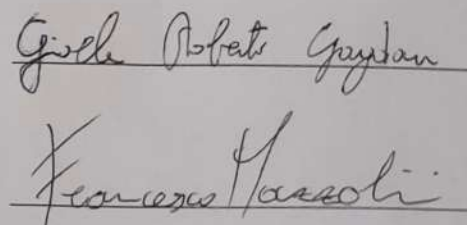 Gioele Roberto Gaydou
Francesco Mazzoli